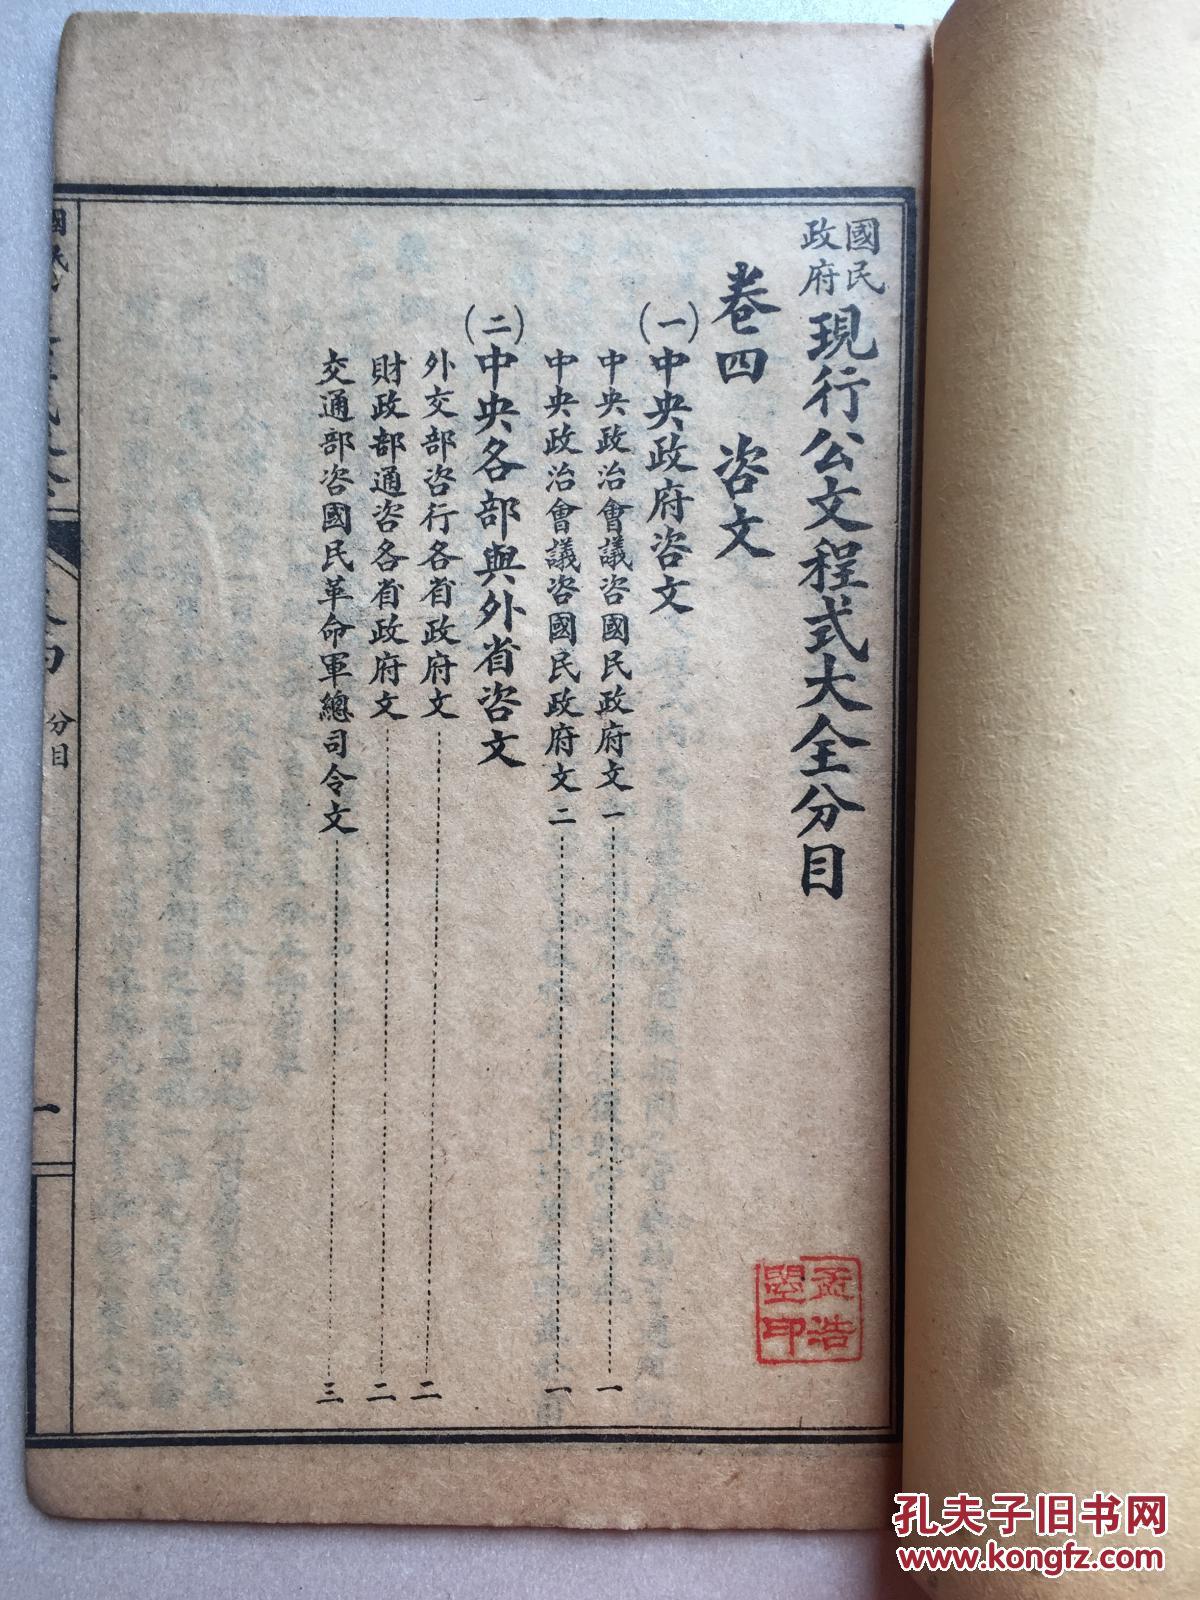 國民政府現行公文程式大全分目
卷四　咨文
(一)中央政府咨文
中央政治會議咨國民政府文一 一
中央政治會議咨國民政府文二 一
(二)中央各部與外省咨文
外交部咨行各省政府文 二
財政部通咨各省政府文 二
交通部咨國民革命軍總司令文 三
分目
一
孔夫子旧书网
www.kongfz.com